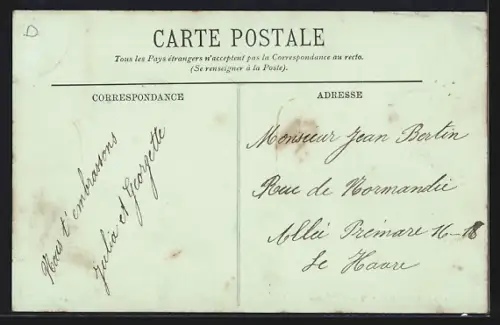 D
CARTE POSTALE
Tous les Pays étrangers n'acceptent pas la Correspondance au recto.
(Se renseigner à la Poste).
CORRESPONDANCE
Nous t'embrassons
Julia et Georgette
ADRESSE
Monsieur Jean Bertin
Rue de Normandie
Allée Prémare 16-18
Le Havre